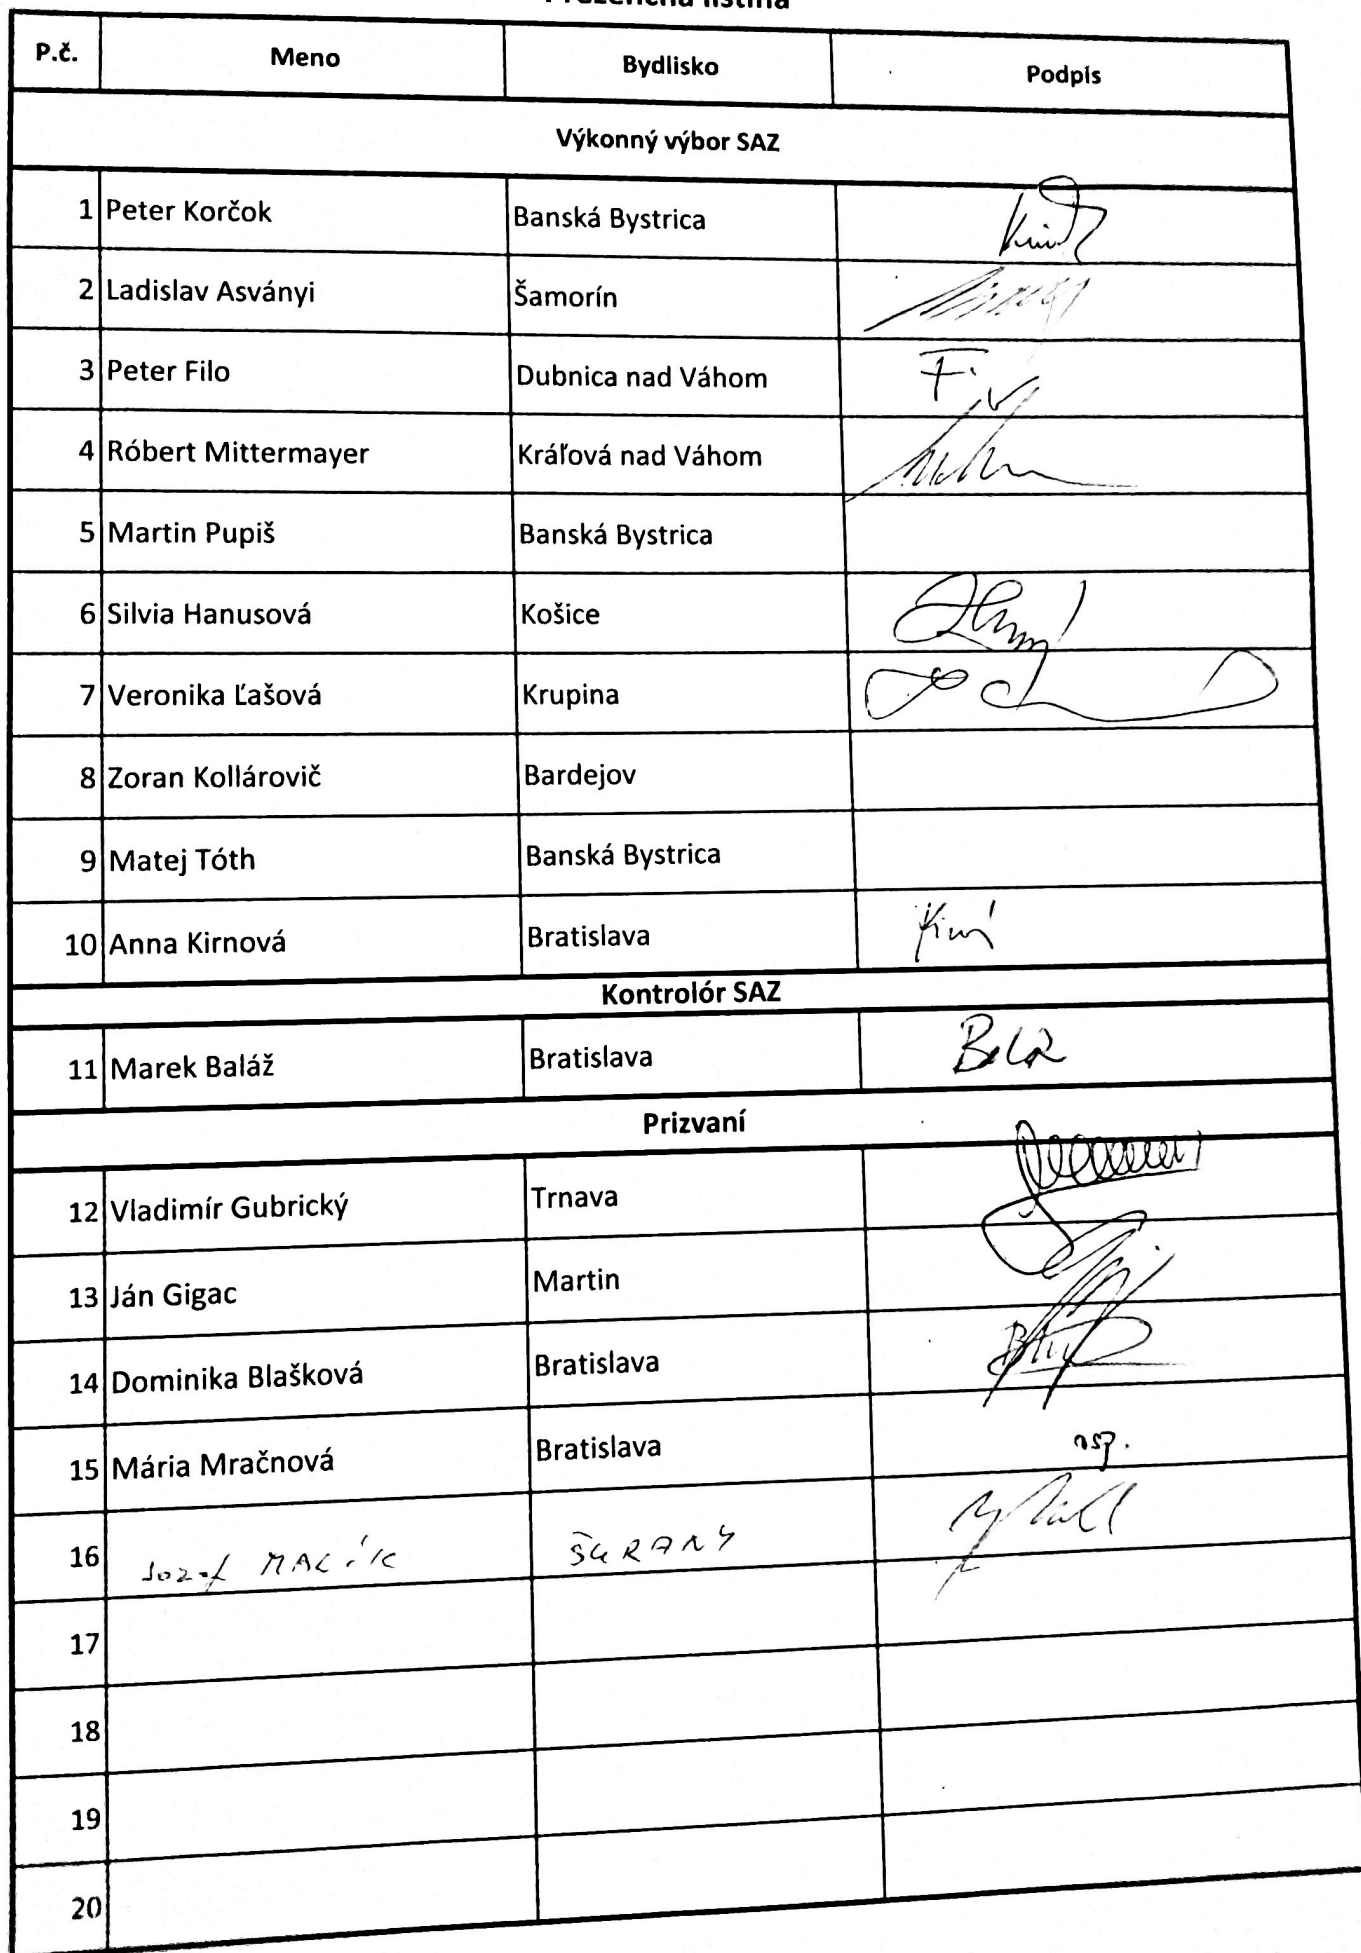 Prezenčná listina
P.č. Meno Bydlisko Podpis
Výkonný výbor SAZ
1 Peter Korčok Banská Bystrica
2 Ladislav Asványi Šamorín
3 Peter Filo Dubnica nad Váhom
4 Róbert Mittermayer Kráľová nad Váhom
5 Martin Pupiš Banská Bystrica
6 Silvia Hanusová Košice
7 Veronika Ľašová Krupina
8 Zoran Kollárovič Bardejov
9 Matej Tóth Banská Bystrica
10 Anna Kirnová Bratislava
Kontrolór SAZ
11 Marek Baláž Bratislava
Prizvaní
12 Vladimír Gubrický Trnava
13 Ján Gigac Martin
14 Dominika Blašková Bratislava
15 Mária Mračnová Bratislava osp.
16 Jozef MALÍK ŠURANY
17
18
19
20